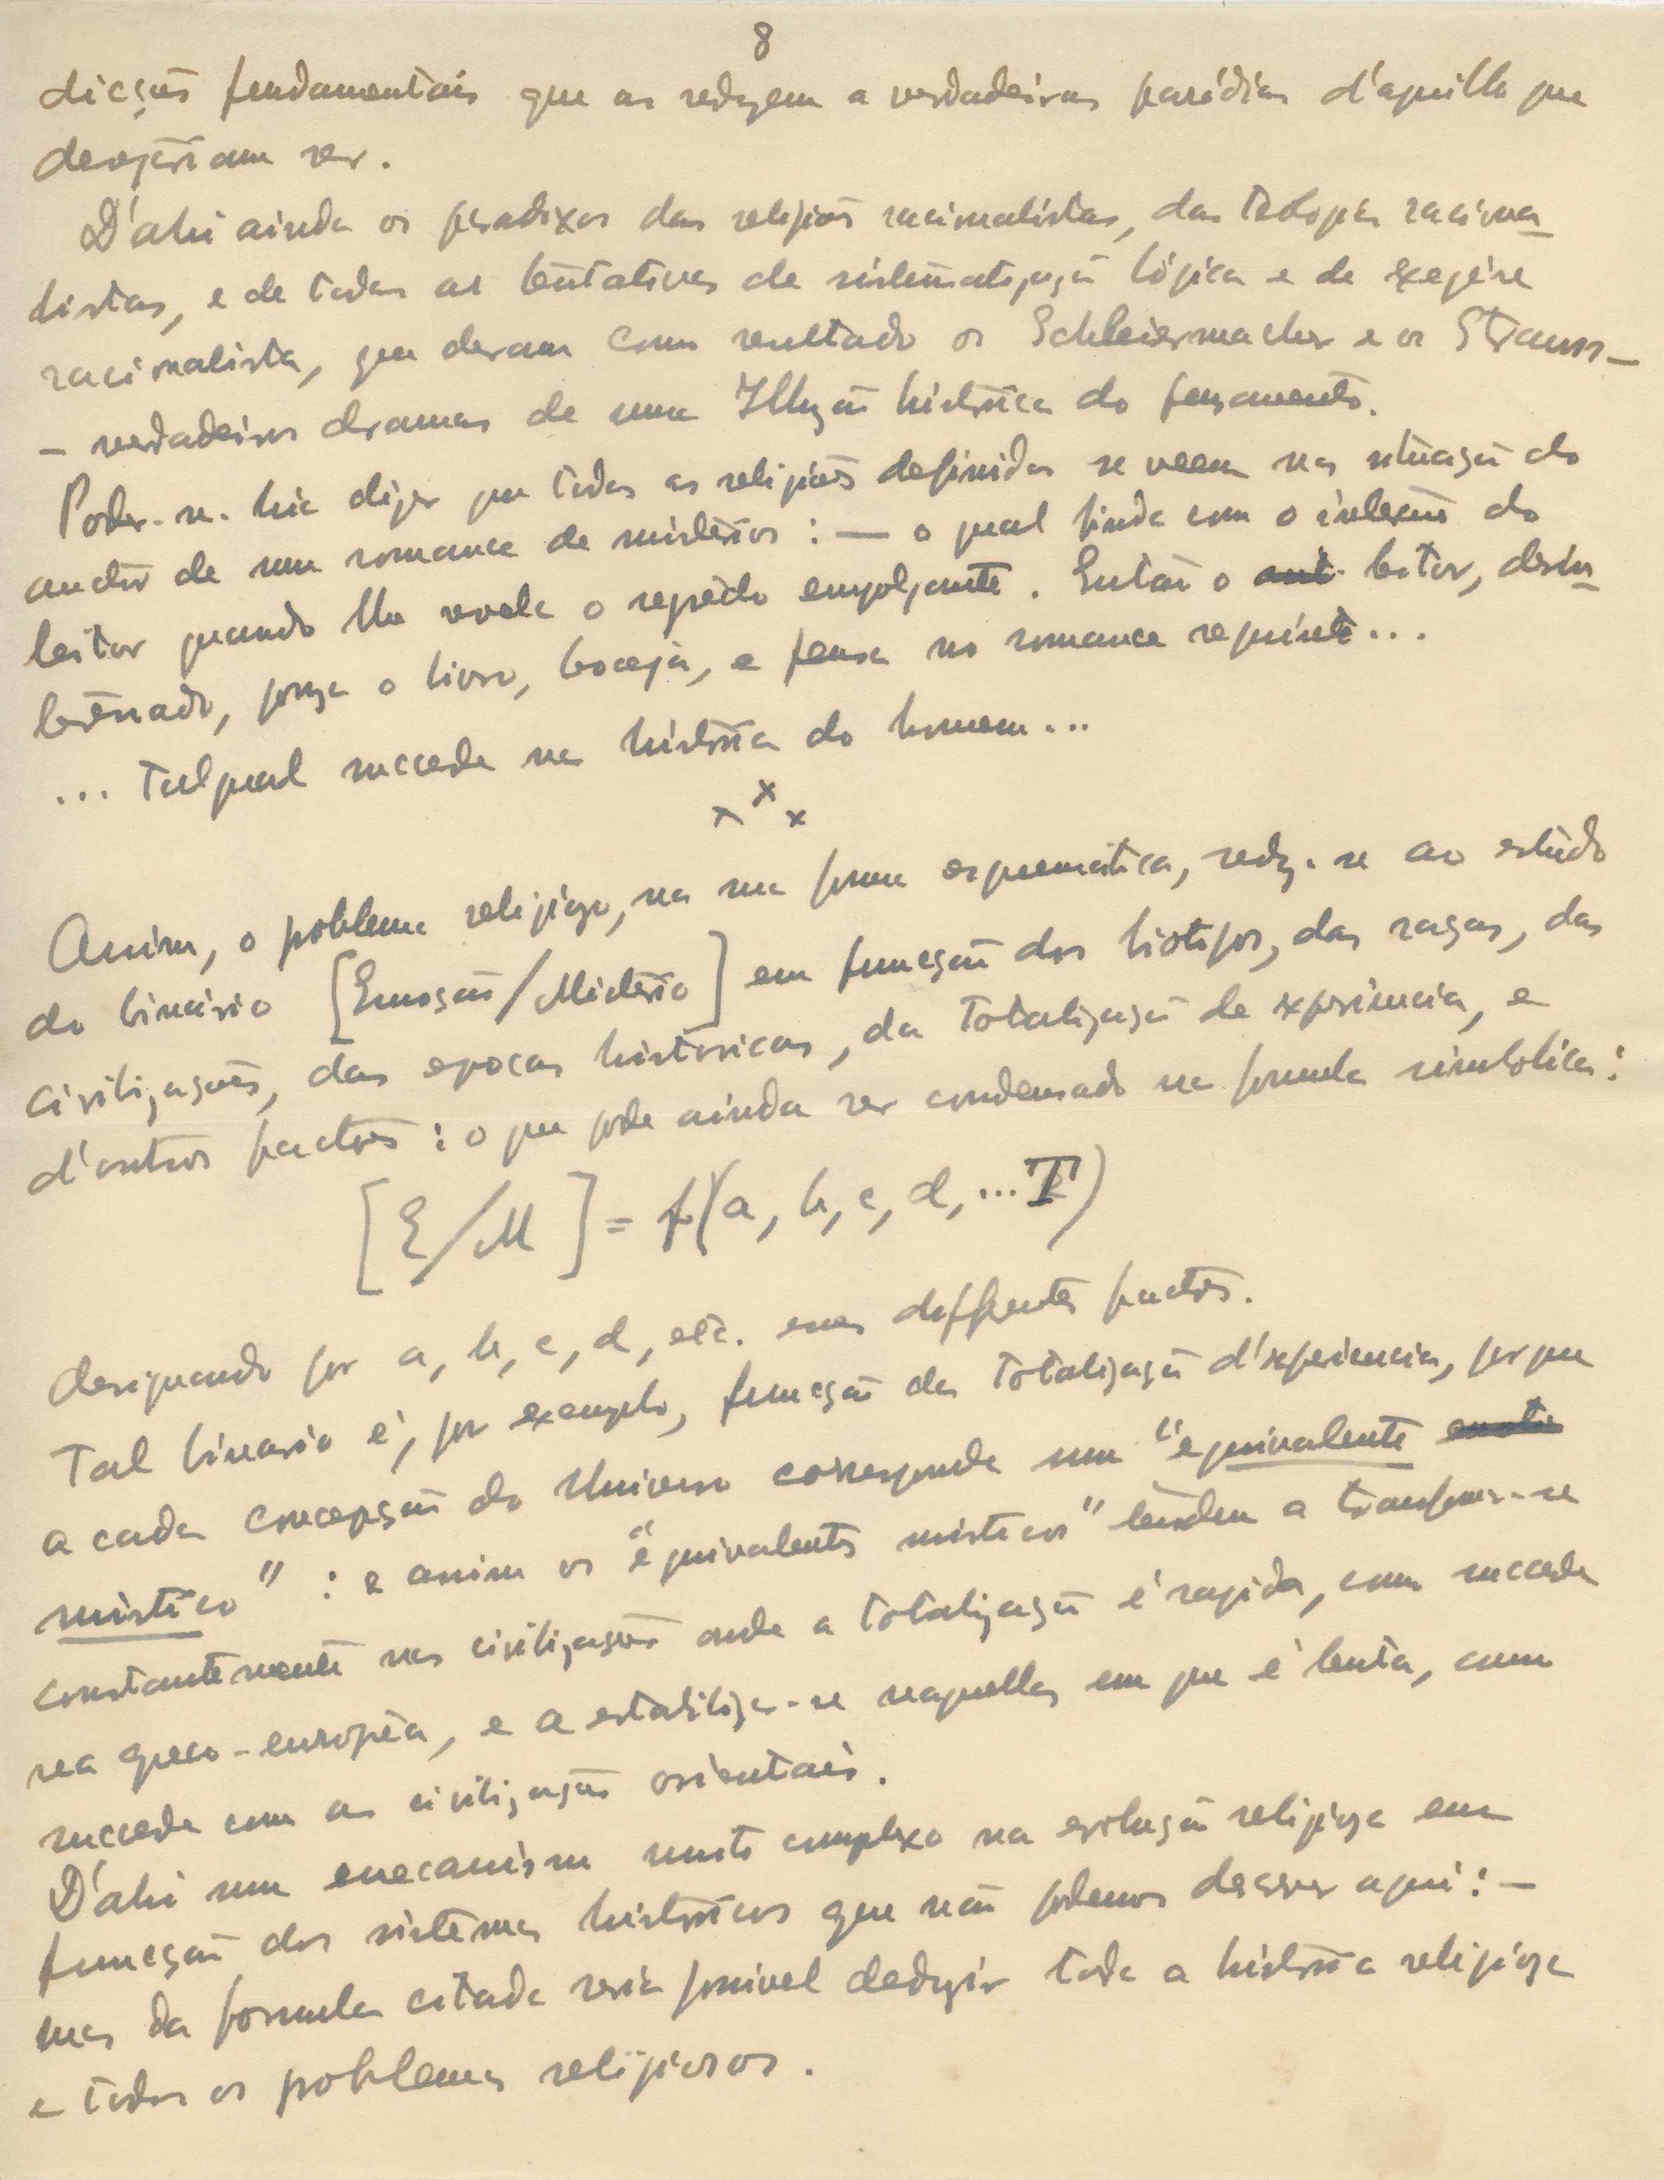 8
dicções fundamentais que as reduzem a verdadeiras paródias d'aquillo que
desejariam ser.
D'ahi ainda os paradoxos das religiões racionalistas, das teologias raciona-
listas, e de todas as tentativas de sistematização lógica e de exegése
racionalista, que deram como resultado os Schleiermacher e os Strauss-
- verdadeiros dramas de uma Illuzão histórica do pensamento.
Poder-se-hia dizer que todas as religiões definidas se veem na situação do
auctor de um romance de mistérios: — o qual finda com o interesse do
leitor quando lhe revela o segrêdo empolgante. Então o aut- leitor, desin-
teressado, pouza o livro, boceja, e pensa no romance seguinte...
... Tal qual succede na história do homem...
x x x
Assim, o problema religiozo, na sua forma esquemática, reduz-se ao estúdo
do binário [Emoção/Mistério] em funcção dos biotipos, das raças, das
civilizações, das epocas historicas, da totalização de experiencia, e
d'outros factores: o que pode ainda ser condensado na formula simbolica:
[E/M] = f(a, b, c, d, ... T)
designando por a, b, c, d, etc. esses differentes factores.
Tal binario é, por exemplo, funcção da totalização d'experiencia, porque
a cada concepção do Universo corresponde um "equivalente
mistico" : e assim os "equivalentes misticos" tendem a transformar-se
constantemente nas civilizações onde a totalização é rapida, como succede
na greco-européa, e a estabilizar-se naquellas em que é lenta, como
succede com as civilizações orientais.
D'ahi um mecanismo muito complexo na evolução religioza em
funcção dos sistemas históricos que não podemos descrever aqui: -
mas da formula citada seria possivel deduzir toda a história religioza
e todos os problemas religiosos.